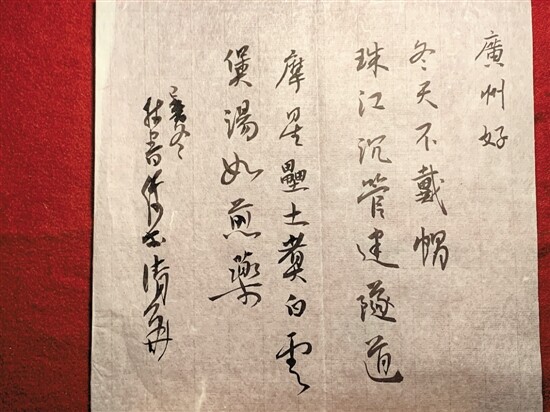 廣州好
冬天不戴帽
珠江沉管建隧道
摩星壘土糞白雲
煲湯如煎藥